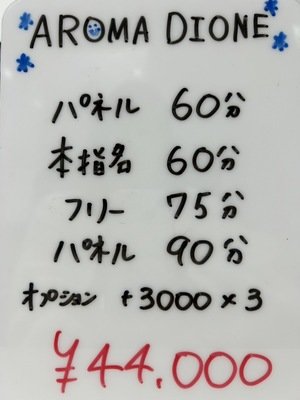 AROMA DIONE
パネル 60分
本指名 60分
フリー 75分
パネル 90分
オプション +3000×3
¥44.000